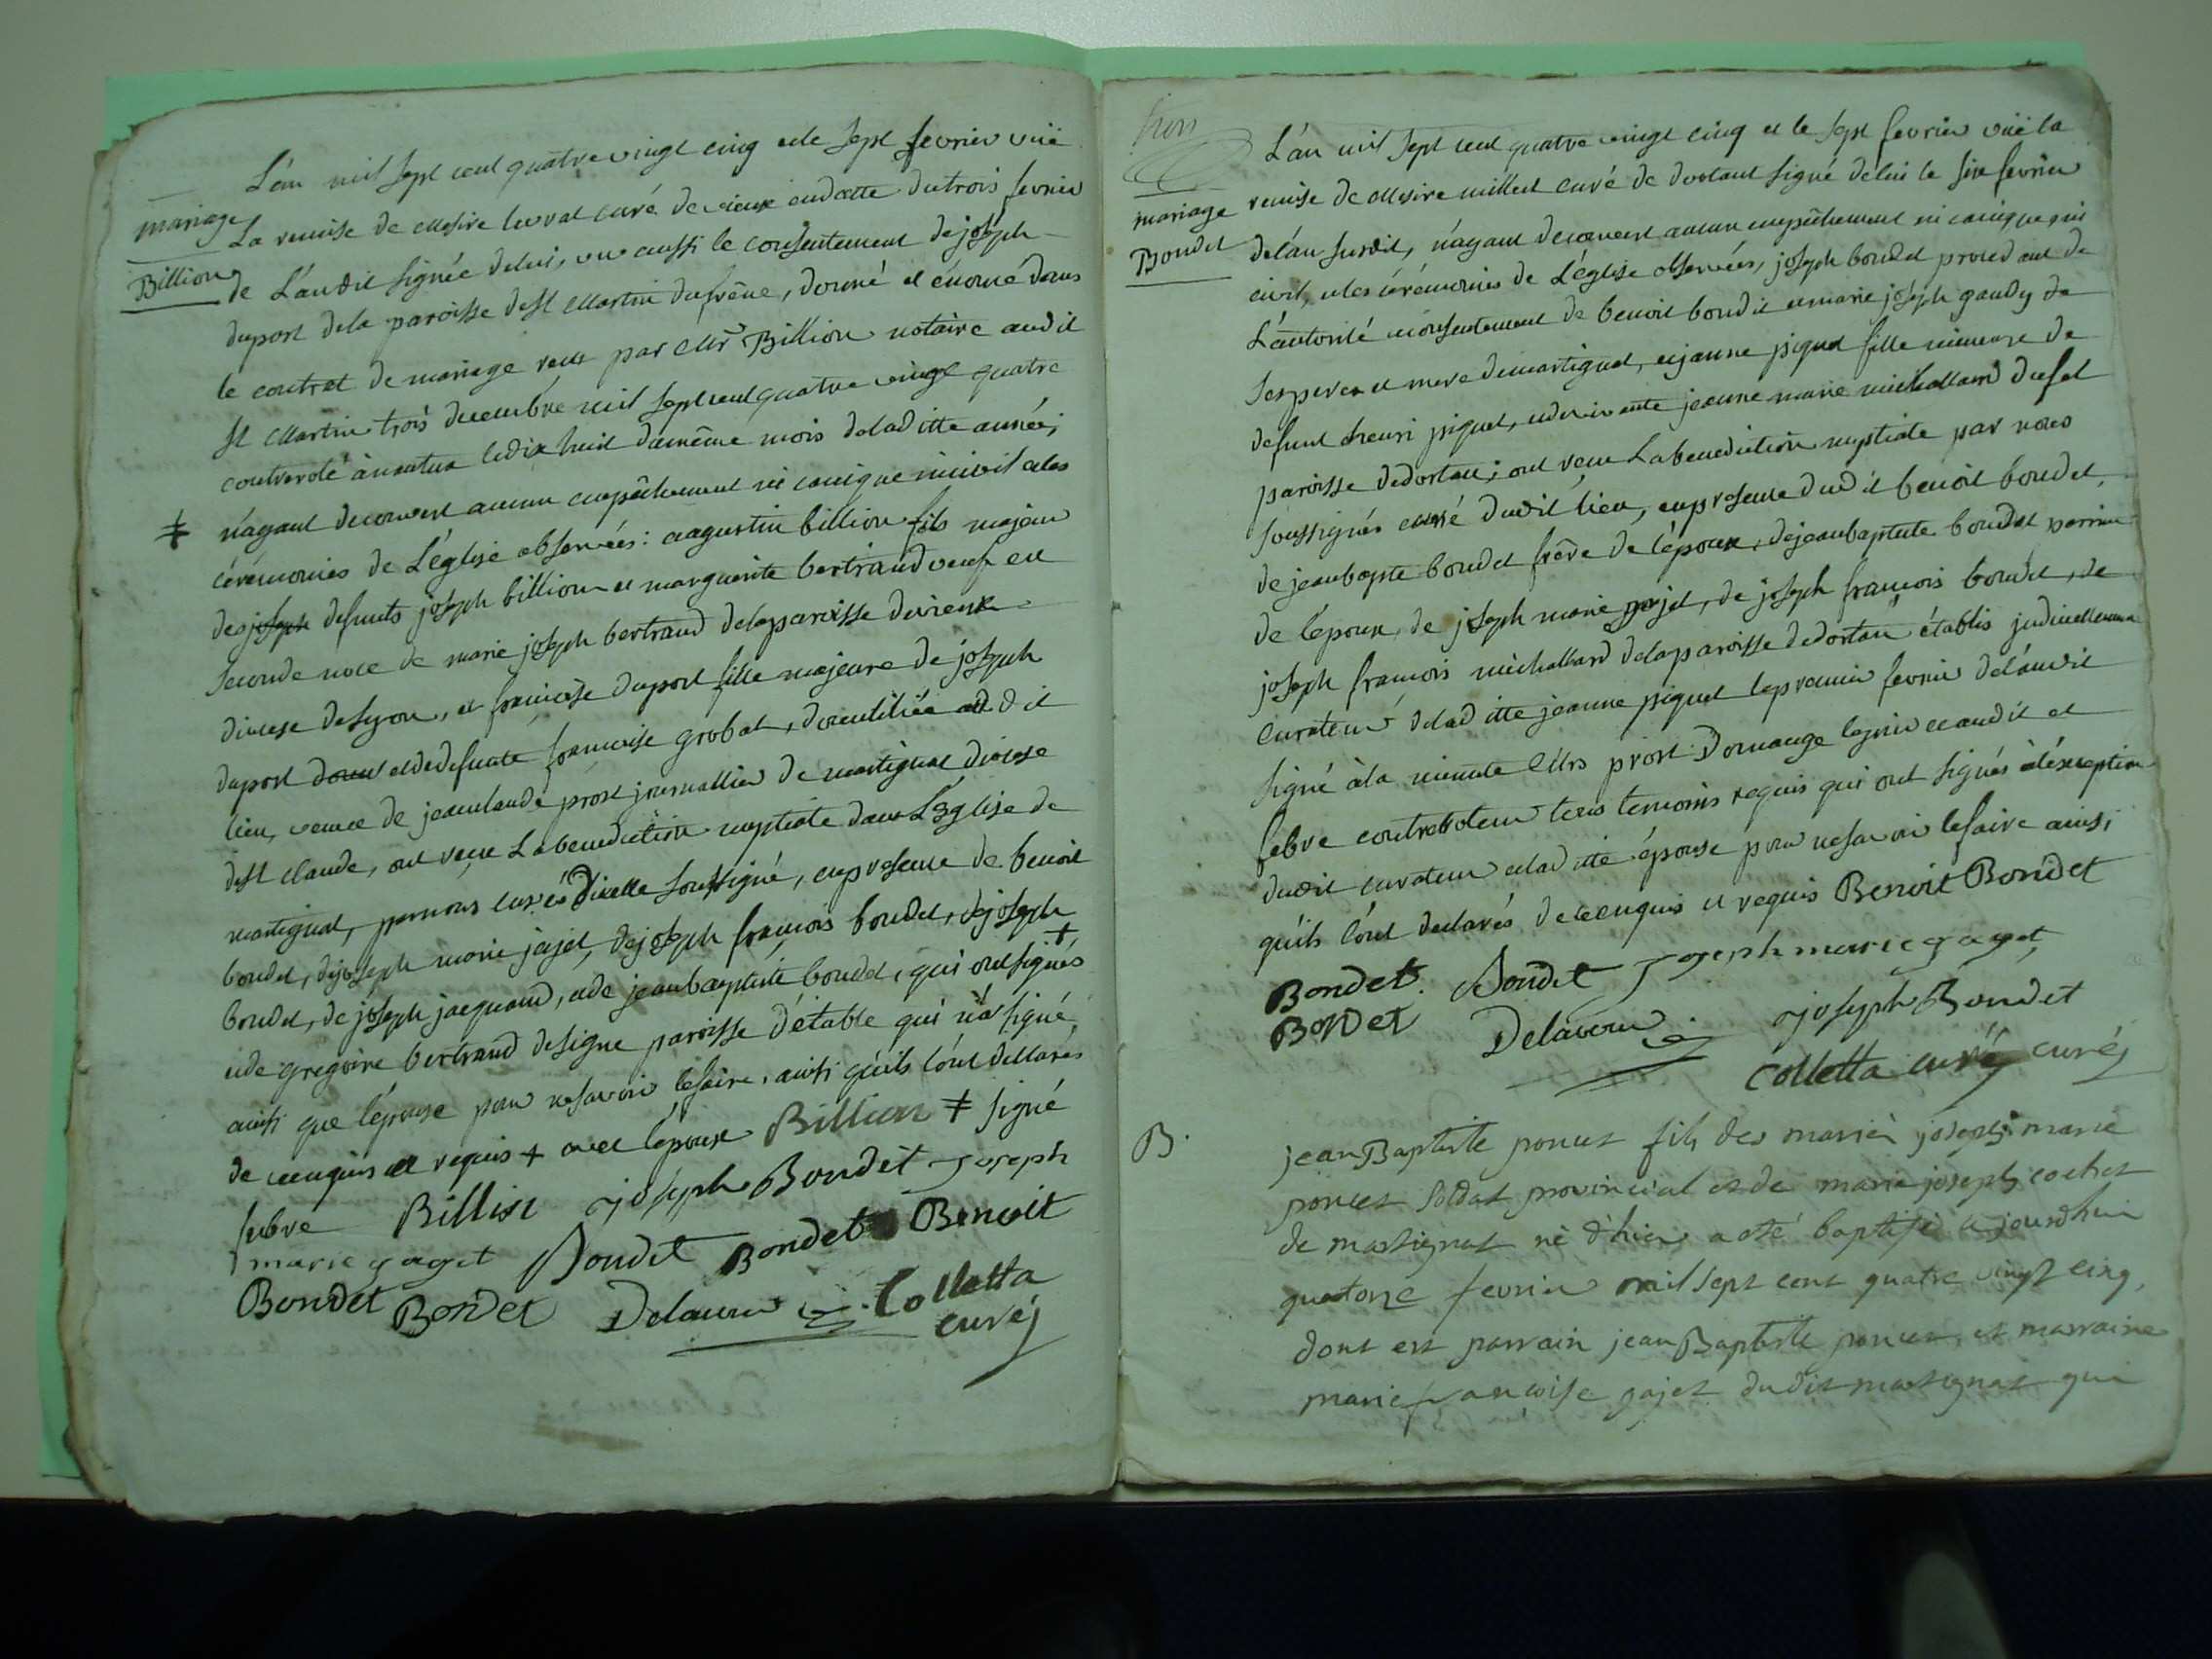 L'an mil sept cent quatre vingt cinq et le sept fevrier vüe
mariage
La remise de Messire curé de vieux en datte du trois fevrier
Billion
de L'an dit signée de lui, vu aussi le consentement de joseph
duport de la paroisse de st Martin du frêne, donné et énoncé dans
le contrat de mariage reçu par Mr Billion notaire audit
st Martin trois decembre mil sept cent quatre vingt quatre
controlé à nantua le dix huit du même mois de la ditte année,
‡ n'ayant decouvert aucun empêchement ni canique ni civil et les
cérémonies de L'église observées: augustin billion fils majeur
des joseph defunts joseph billion et marguerite bertrand veuf en
seconde noce de marie joseph bertrand de la paroisse de vieux
diocese de lyon, et francoise duport fille majeure de joseph
duport et de defunte francoise grobat, domiciliée audit
lieu, veuve de jean claude prost journallier de martignat diocese
de st claude, ont reçue La benediction nuptiale dans L'Eglise de
martignat, par nous curés d'icelle soussigné, en presence de benoit
bondet, de joseph marie jajet, de joseph françois bondet, de joseph
bondet, de joseph jacquand, et de jean baptiste bondet, qui ont signés +
et de gregoire bertrand de signe paroisse d'étable qui n'a signé,
ainsi que l'épouse pour ne savoir le faire, ainsi qu'ils l'ont dellarés
de ce enquis et requis + avec l'époux Billion ‡ signé
febvre Billion joseph Bondet joseph
marie gaget Bondet Bondet Benoit
Bondet Bondet Delavenu Colletta
curé
L'an mil sept cent quatre vingt cinq et le sept fevrier vüe la
mariage
remise de Messire millet curé de dortant signé de lui le six fevrier
Bondet
de l'an susdit, n'ayant decouvert aucun empêchement ni canique ni
civil, et les cérémonies de L'église observées, joseph bondet procedant de
L'autorité et consentement de benoit bondet et marie joseph gaudy de
ses pere et mere de martignat, et jeanne piquet fille mineure de
defunt henri piquet, et de vivante jeanne marie michallard du fet
paroisse de dortan; ont reçu La benediction nuptiale par nous
soussignés curé dudit lieu, en presence dudit benoit bondet,
de jean bapte bondet frêre de l'époux, de jean baptiste bondet parrain
de l'époux, de joseph marie gajet, de joseph françois bondet, de
joseph françois michallard de la paroisse de dortan établis judiciellement
curateur de la ditte jeanne piquet le premier fevrier de l'an dit
signé à la minute Mrs prost Domange et
febvre controlleur tous temoins requis qui ont signés à l'exception
dudit curateur et la ditte épouse pour ne savoir le faire ainsi
qu'ils l'ont declarés de ce enquis et requis Benoit Bondet
Bondet. Bondet joseph marie gaget
Bondet Delavenu joseph Bondet
Colletta curé curé
B.
jean Baptiste poncet fils des mariés joseph marie
poncet soldat provincial et de marie joseph cochet
de martignat né d'hier a été baptisé aujourdhui
quatorze fevrier mil sept cent quatre vingt cinq,
dont est parrain jean Baptiste poncet et marraine
marie francoise gajet dudit martignat qui